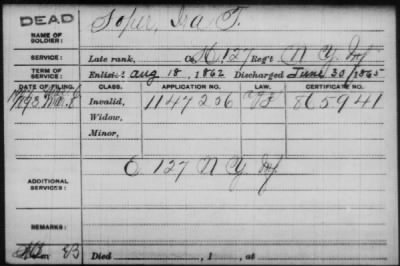 DEAD
NAME OF SOLDIER: Soper, Ira T.
SERVICE: Late rank, Co. H, 127 Reg't N Y Inf
TERM OF SERVICE: Enlisted Aug 18, 1862 Discharged June 30, 1865
DATE OF FILING. CLASS. APPLICATION NO. LAW. CERTIFICATE NO.
Invalid, 1147236 865941
Widow,
Minor,
ADDITIONAL SERVICES: C 127 N Y Inf
REMARKS:
Died , 1 , at